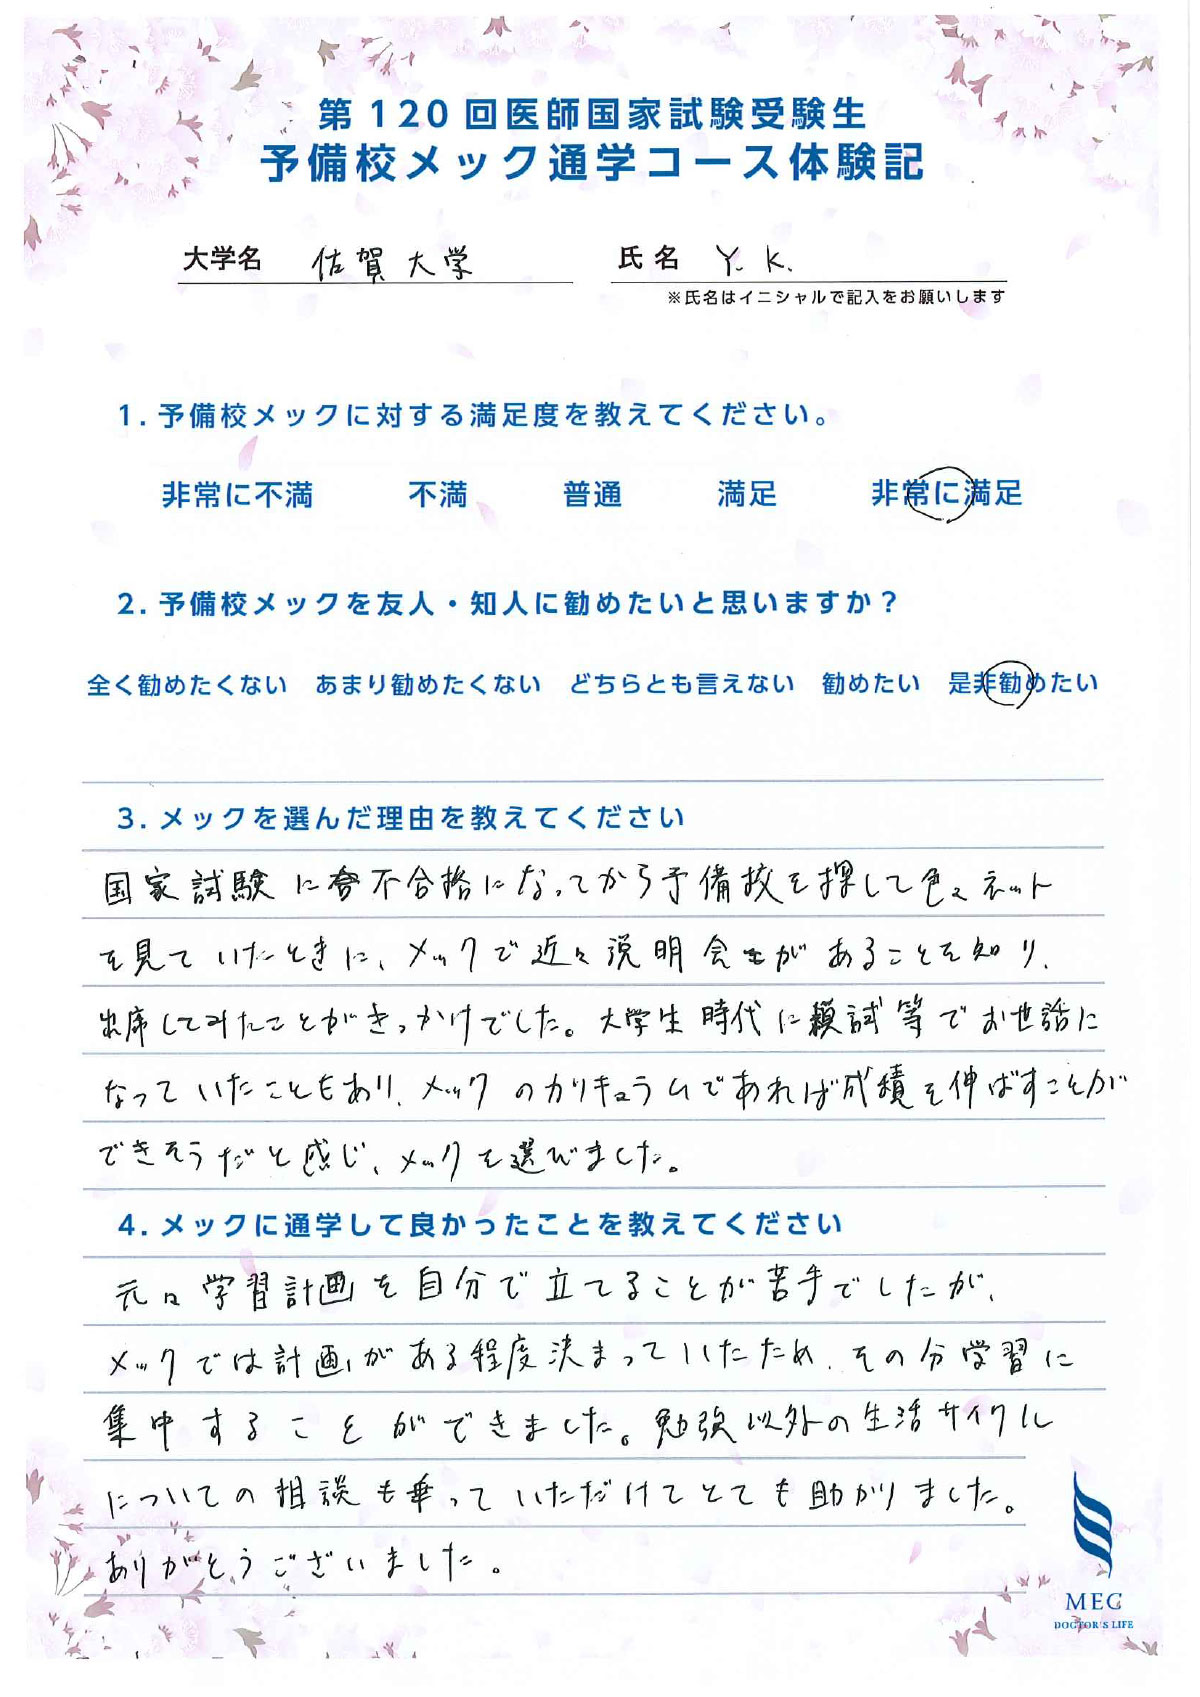 第120回医師国家試験受験生
予備校メック通学コース体験記
大学名 佐賀大学 氏名 Y. K.
※氏名はイニシャルで記入をお願いします
1. 予備校メックに対する満足度を教えてください。
非常に不満 不満 普通 満足 非常に満足
2. 予備校メックを友人・知人に勧めたいと思いますか？
全く勧めたくない あまり勧めたくない どちらとも言えない 勧めたい 是非勧めたい
3. メックを選んだ理由を教えてください
国家試験に不合格になってから予備校を探して色々ネット
を見ていたときに、メックで近々説明会があることを知り、
出席してみたことがきっかけでした。大学生時代に模試等でお世話に
なっていたこともあり、メックのカリキュラムであれば成績を伸ばすことが
できそうだと感じ、メックを選びました。
4. メックに通学して良かったことを教えてください
元々学習計画を自分で立てることが苦手でしたが、
メックでは計画がある程度決まっていたため、その分学習に
集中することができました。勉強以外の生活サイクル
についての相談も乗っていただけてとても助かりました。
ありがとうございました。
MEC
DOCTOR'S LIFE